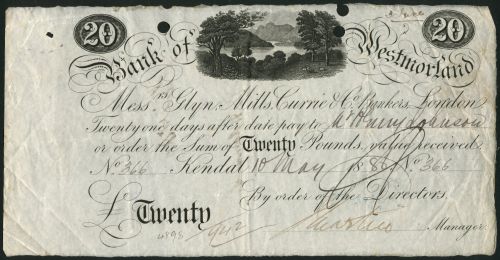 20 20
Bank of Westmorland
Mess.rs Glyn, Mills, Currie & Co. Bankers, London
Twenty one days after date pay to Mr Henry Johnson
or order the Sum of Twenty Pounds, value received
No. 366 Kendal 10 May 18 No. 366
By order of the Directors.
£ Twenty
4895 Manager.